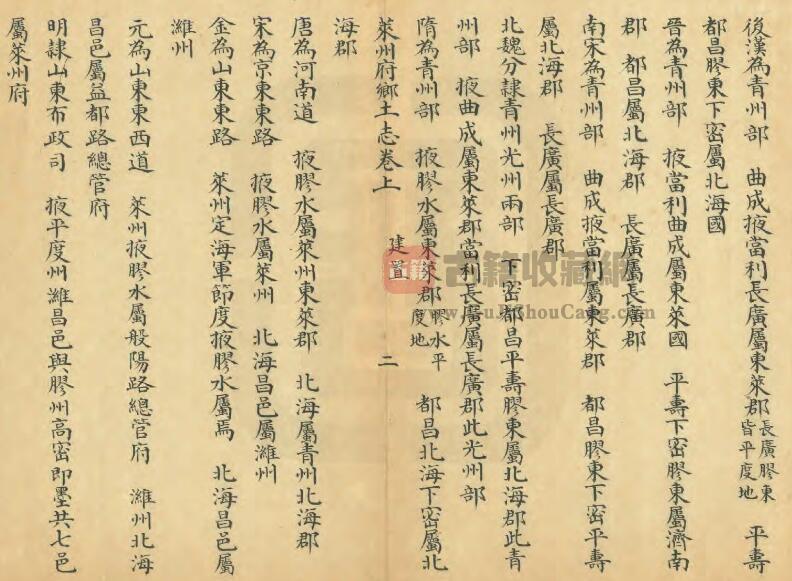 後漢為青州部　曲成掖當利長廣屬東萊郡長廣膠東皆平度地　平壽
都昌膠東下密屬北海國
晉為青州部　掖當利曲成屬東萊國　平壽下密膠東屬濟南
郡　都昌屬北海郡　長廣屬長廣郡
南宋為青州部　曲成掖當利屬東萊郡　都昌膠東下密平壽
屬北海郡　長廣屬長廣郡
北魏分隸青州光州兩部　下密都昌平壽膠東屬北海郡此青
州部　掖曲成屬東萊郡當利長廣屬長廣郡此光州部
隋為青州部　掖膠水屬東萊郡膠水平度地　都昌北海下密屬北
萊州府鄉土志卷上　建置　二
海郡
唐為河南道　掖膠水屬萊州東萊郡　北海屬青州北海郡
宋為京東東路　掖膠水屬萊州　北海昌邑屬濰州
金為山東東路　萊州定海軍節度掖膠水屬焉　北海昌邑屬
濰州
元為山東東西道　萊州掖膠水屬般陽路總管府　濰州北海
昌邑屬益都路總管府
明隸山東布政司　掖平度州濰昌邑與膠州高密即墨共七邑
屬萊州府
古籍
古籍收藏網
www.GuJiShouCang.com